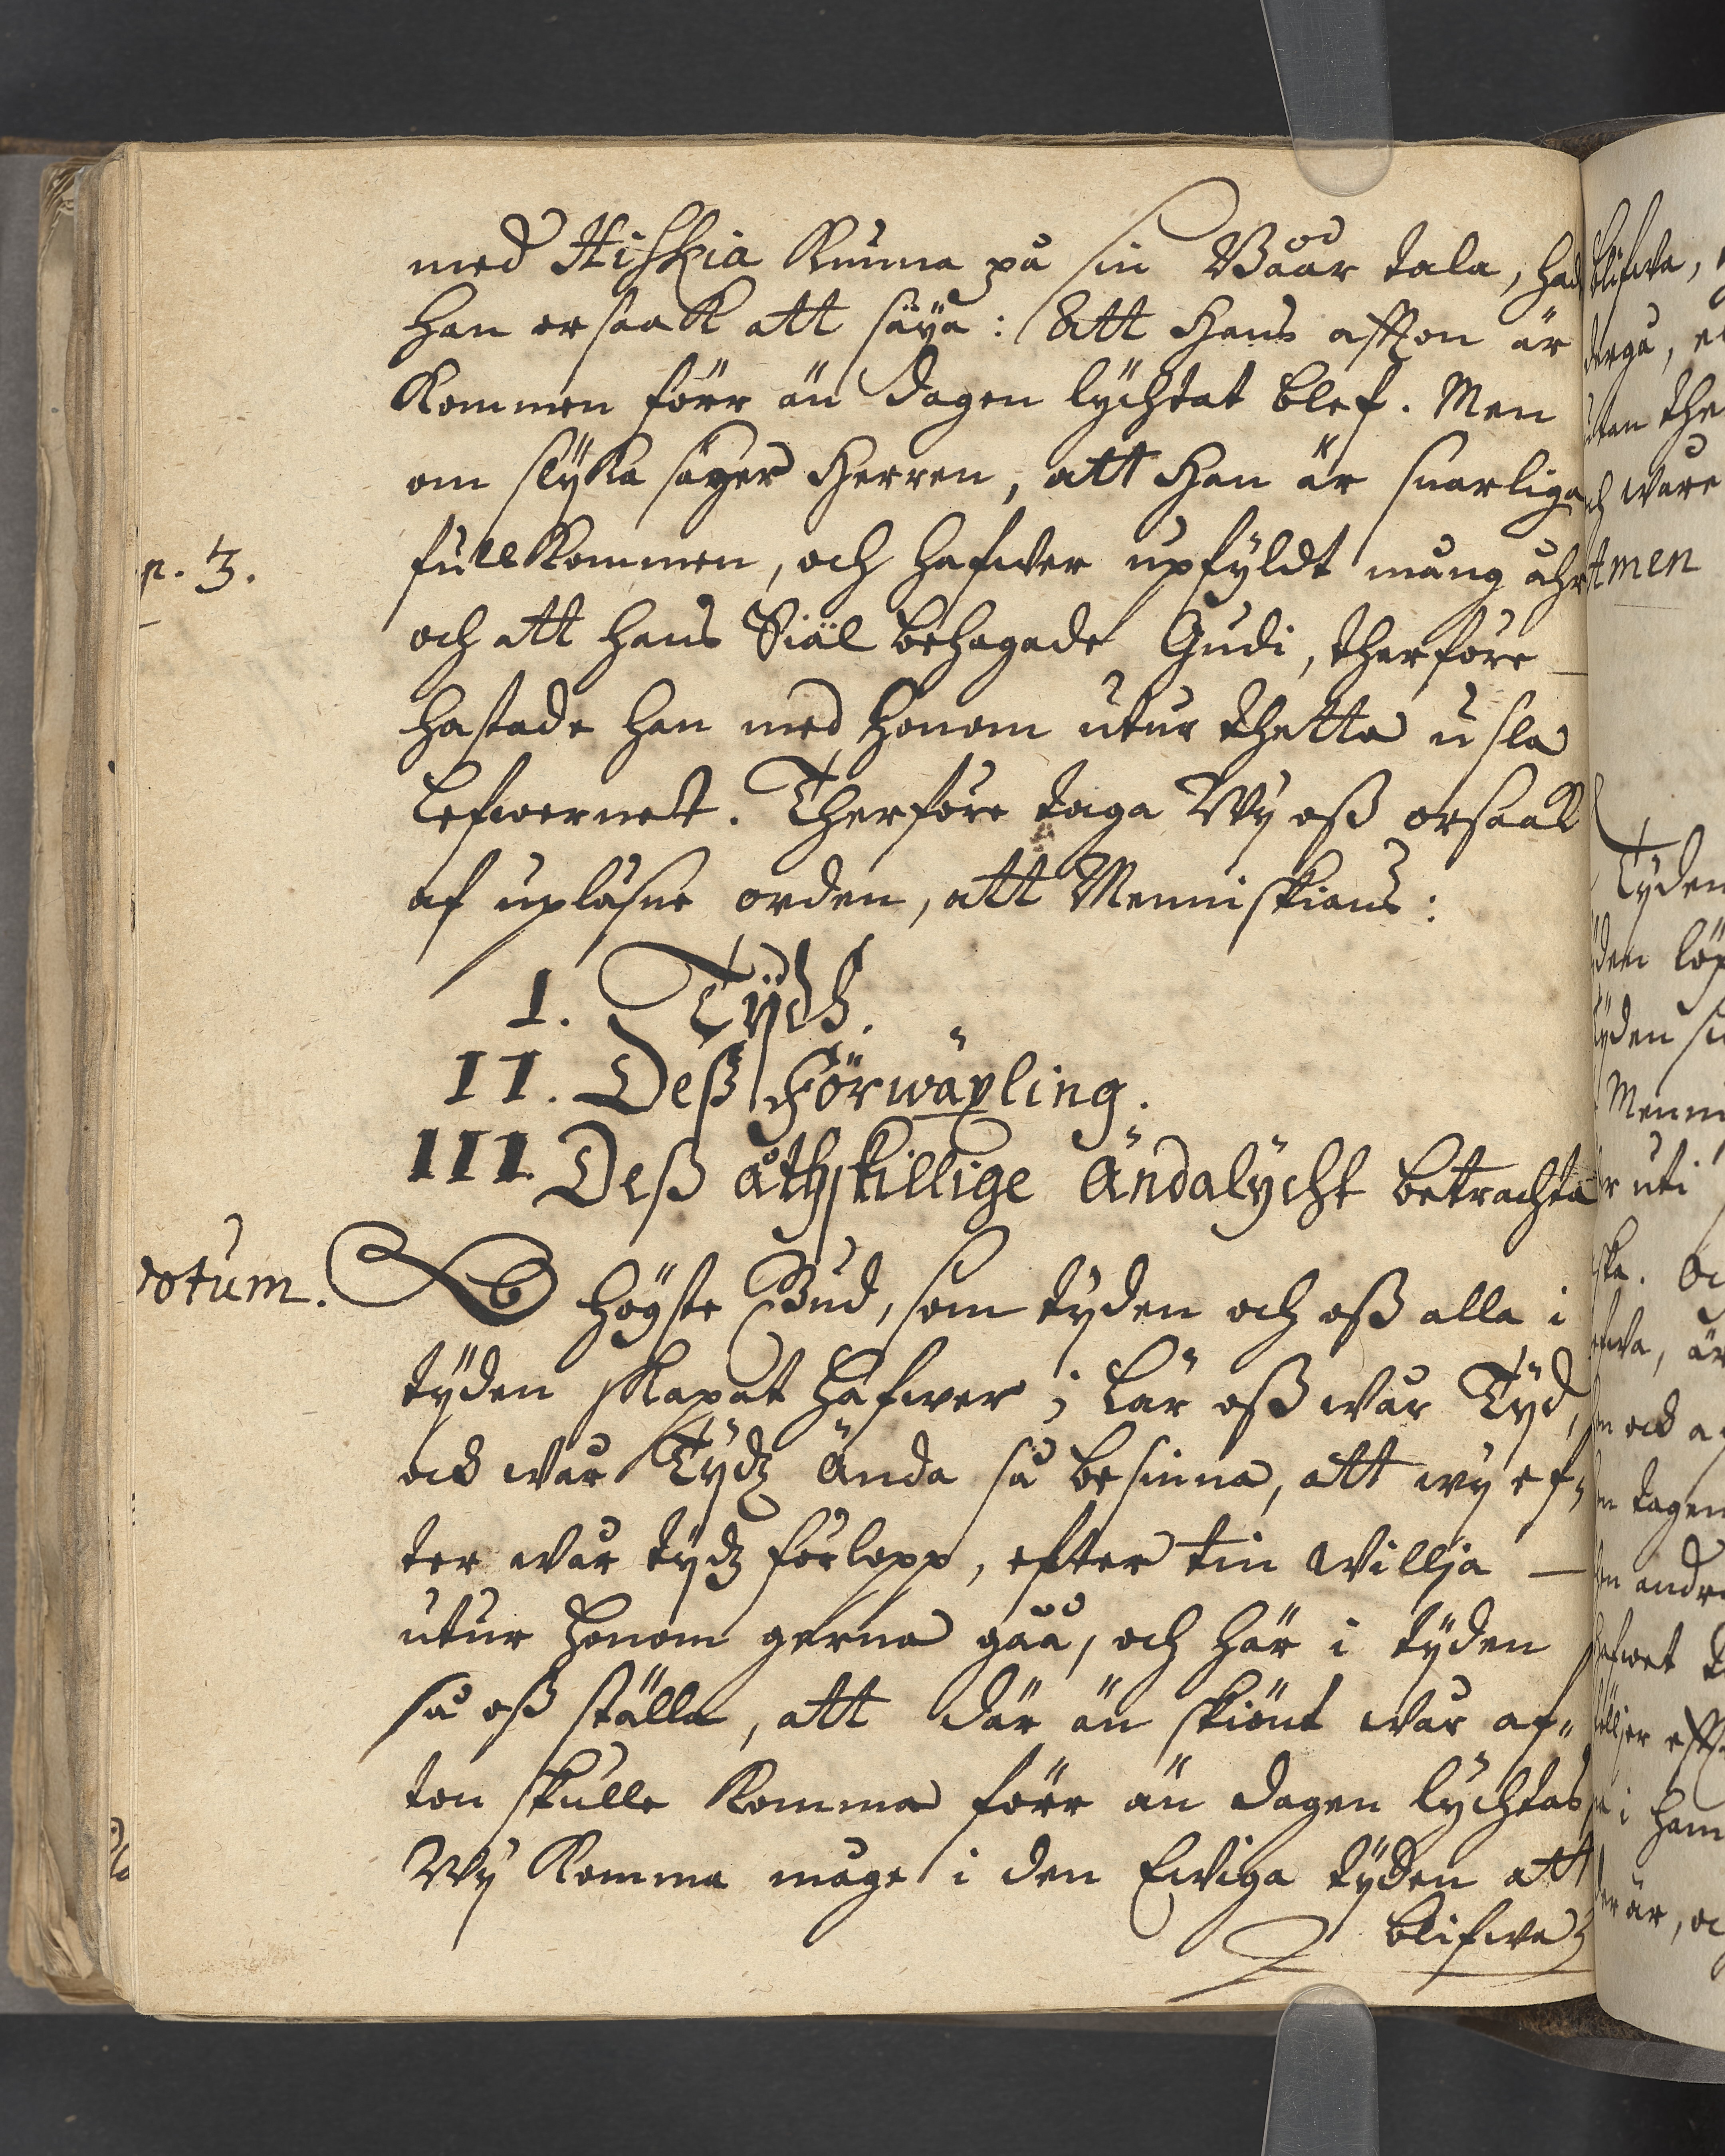 med Hiskia kunna på sin Båår tala, had
han orsaak att säija: Att Hans affton är
kommen förr än dagen lÿchtat blef. Men
om slÿka säger Herren, att Han är snarliga
p. 3.
fullkommen, och hafwer upfÿldt mång åhr
och att hans Siäl behagade Gudi, therföre
hastade han med honom utur thetta usla
Lefwernet. Therföre taga Wÿ oß orsaak
af upläsne orden, att Menniskians:
I. Tÿdh.
II. Deß Förwäxling.
III. Deß åthskillige Ändalÿcht betrachta
otum.
O högste Gud, som tÿden och oß alla i
tÿden skapat hafwer; Lär oß wår Tÿd,
ock wår Tÿdz Ända så besinna, att wÿ ef-
ter wår tÿdz förlopp, efter tin willja —
utur honom gerna gåå, och här i tÿden
så oß ställa, att där än skiönt wår af-
ton skulle komma förr än dagen lÿchtas
Wÿ komma måge i den Ewiga tÿden att
blifwa
blifwa,
uten the
ware
Amen
Tÿden
den löp
tÿden
Menni
uti
ska.
ock
tagen
andra
i ham
är, oc